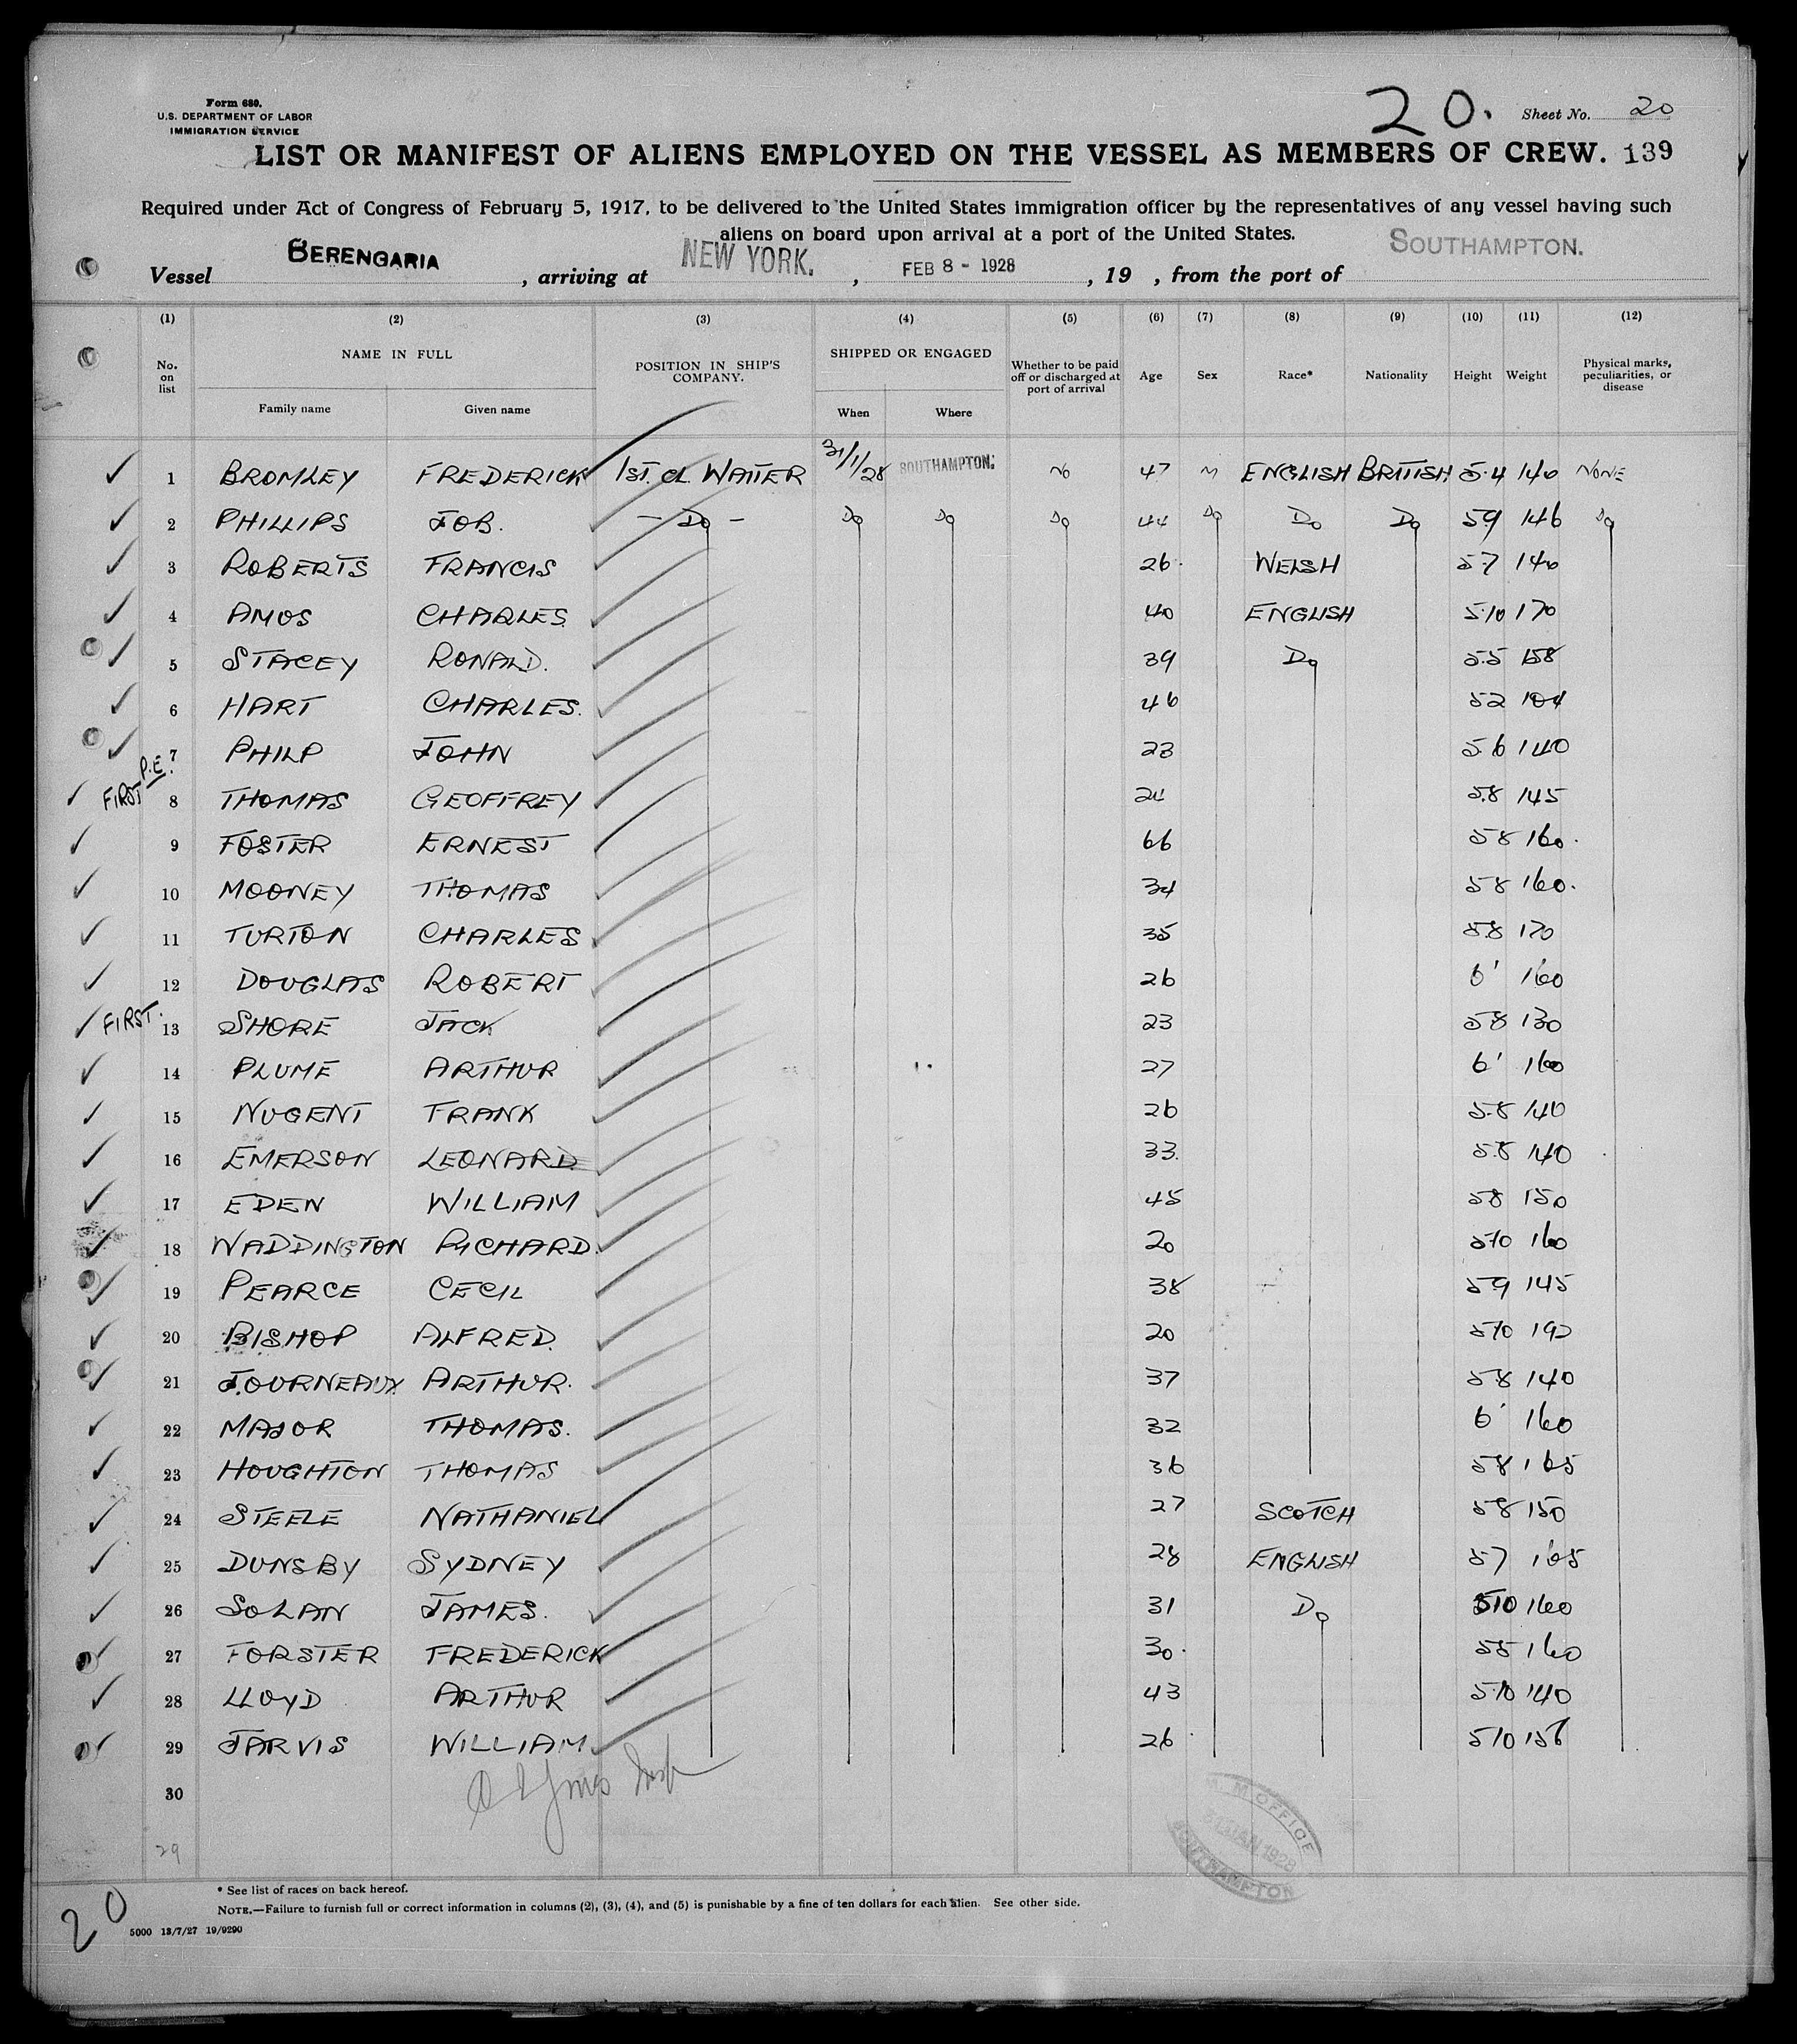 Form 680.
U.S. DEPARTMENT OF LABOR
IMMIGRATION SERVICE
20. Sheet No. 20
LIST OR MANIFEST OF ALIENS EMPLOYED ON THE VESSEL AS MEMBERS OF CREW. 139
Required under Act of Congress of February 5, 1917, to be delivered to the United States immigration officer by the representatives of any vessel having such
aliens on board upon arrival at a port of the United States.
Vessel BERENGARIA, arriving at NEW YORK., FEB 8 - 1928, 19 , from the port of SOUTHAMPTON.
(1) (2) (3) (4) (5) (6) (7) (8) (9) (10) (11) (12)
No. on list NAME IN FULL POSITION IN SHIP'S COMPANY. SHIPPED OR ENGAGED Whether to be paid off or discharged at port of arrival Age Sex Race* Nationality Height Weight Physical marks, peculiarities, or disease
Family name Given name When Where
1 BROMLEY FREDERICK 1ST. CL. WAITER 31/1/28 SOUTHAMPTON. NO 47 M ENGLISH BRITISH 5.4 140 NONE
2 PHILLIPS JOB. - Do - Do Do Do 44 Do Do Do 59 146 Do
3 ROBERTS FRANCIS 26. WELSH 57 140
4 AMOS CHARLES. 40 ENGLISH 5.10 170
5 STACEY RONALD. 39 Do 5.5 158
6 HART CHARLES. 46 52 104
7 PHILP JOHN 23 5.6 140
P.E.
FIRST 8 THOMAS GEOFFREY 5.8 145
9 FOSTER ERNEST 66 58 160.
10 MOONEY THOMAS 34 58 160.
11 TURTON CHARLES 35 5.8 170
12 DOUGLAS ROBERT 26 6' 160
FIRST. 13 SHORE JACK 23 58 130
14 PLUME ARTHUR 27 6' 160
15 NUGENT FRANK 26 5.8 140
16 EMERSON LEONARD 33. 5.8 140
17 EDEN WILLIAM 45 58 150
18 WADDINGTON RICHARD. 20 5.10 160
19 PEARCE CECIL 38 59 145
20 BISHOP ALFRED. 20 5.10 190
21 JOURNEAUX ARTHUR. 37 58 140
22 MAJOR THOMAS. 32 6' 160
23 HOUGHTON THOMAS 36 58 165
24 STEELE NATHANIEL 27 SCOTCH 58 150
25 DUNSBY SYDNEY 28 ENGLISH 57 165
26 SOLAN JAMES. 31 Do 510 160
27 FORSTER FREDERICK 30. 55 160
28 LLOYD ARTHUR 43 5.10 140
29 JARVIS WILLIAM. 26 510 156
30
29
M. M. OFFICE
31 JAN 1928
SOUTHAMPTON
* See list of races on back hereof.
NOTE.—Failure to furnish full or correct information in columns (2), (3), (4), and (5) is punishable by a fine of ten dollars for each alien. See other side.
20
5000 13/7/27 19/9290